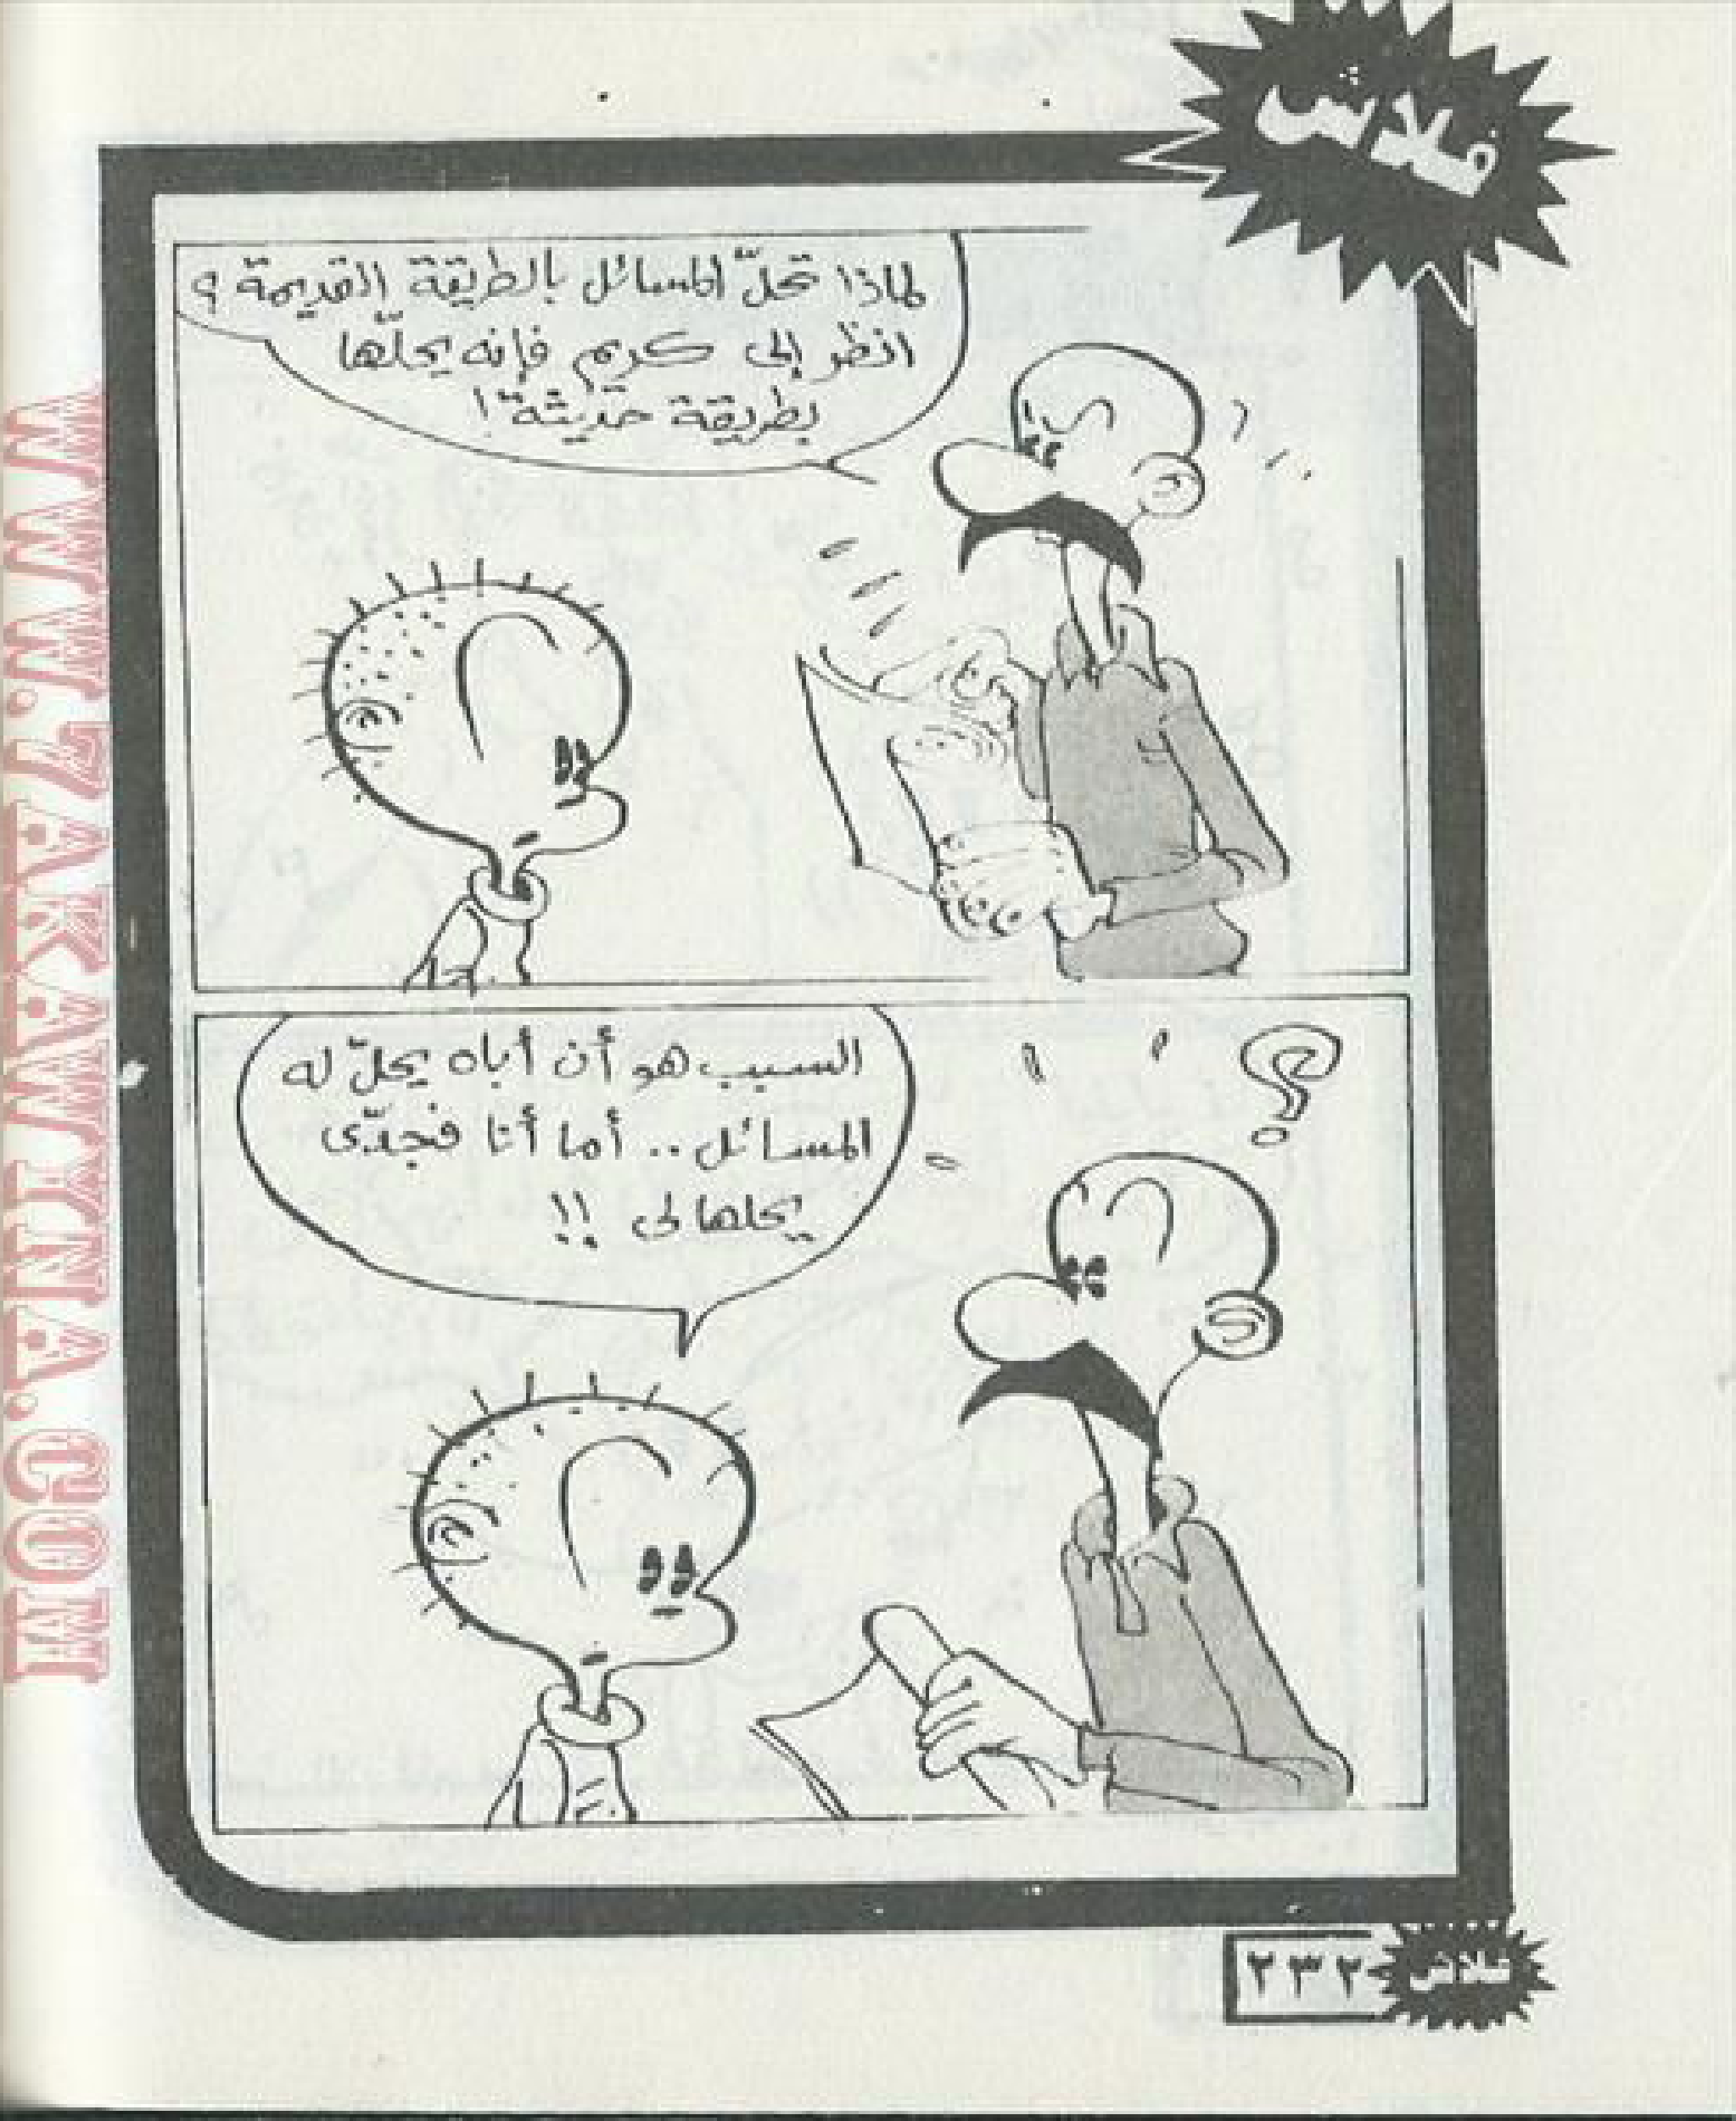 فلاش
لماذا تحلّ المسائل بالطريقة القديمة؟
انظر إلى كريم فإنه يحلّها
بطريقة حديثة!
السبب هو أن أباه يحلّ له
المسائل .. أما أنا فجدّى
يحلها لى !!
فلاش
٢٣٢
WWW.7AKAWINA.COM